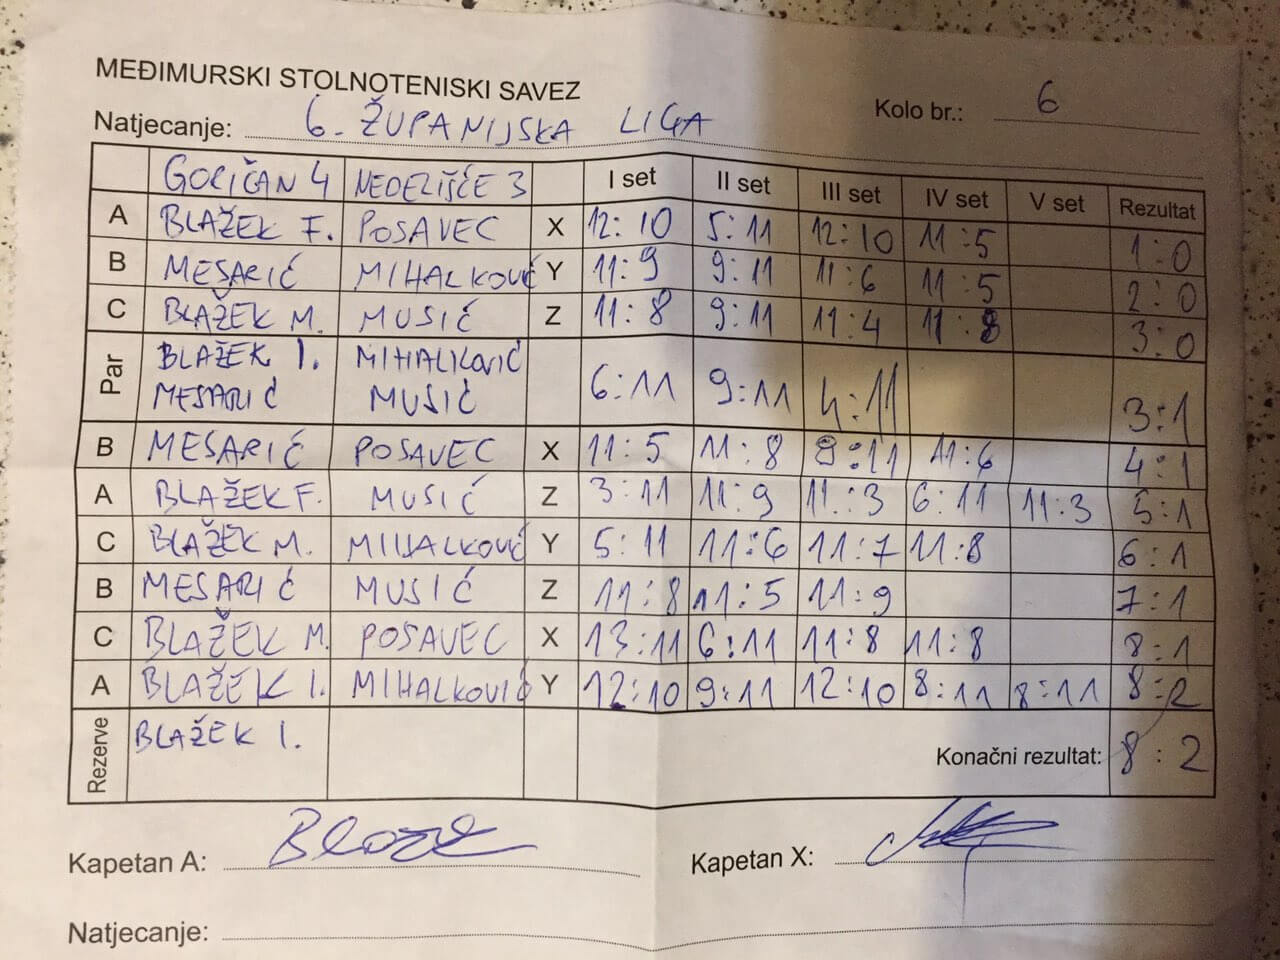 MEĐIMURSKI STOLNOTENISKI SAVEZ
Natjecanje: 6. ŽUPANIJSKA LIGA Kolo br.: 6
GORIČAN 4 NEDELIŠĆE 3 I set II set III set IV set V set Rezultat
A BLAŽEK F. POSAVEC X 12:10 5:11 12:10 11:5 1:0
B MESARIĆ MIHALKOVIĆ Y 11:9 9:11 11:6 11:5 2:0
C BLAŽEK M. MUSIĆ Z 11:8 9:11 11:4 11:8 3:0
Par BLAŽEK I. MIHALKOVIĆ
MESARIĆ MUSIĆ 6:11 9:11 4:11 3:1
B MESARIĆ POSAVEC X 11:5 11:8 8:11 11:6 4:1
A BLAŽEK F. MUSIĆ Z 3:11 11:9 11:3 6:11 11:3 5:1
C BLAŽEK M. MIHALKOVIĆ Y 5:11 11:6 11:7 11:8 6:1
B MESARIĆ MUSIĆ Z 11:8 11:5 11:9 7:1
C BLAŽEK M. POSAVEC X 13:11 6:11 11:8 11:8 8:1
A BLAŽEK I. MIHALKOVIĆ Y 12:10 9:11 12:10 8:11 8:11 8:2
Rezerve BLAŽEK I. Konačni rezultat: 8:2
Kapetan A: Kapetan X:
Natjecanje: